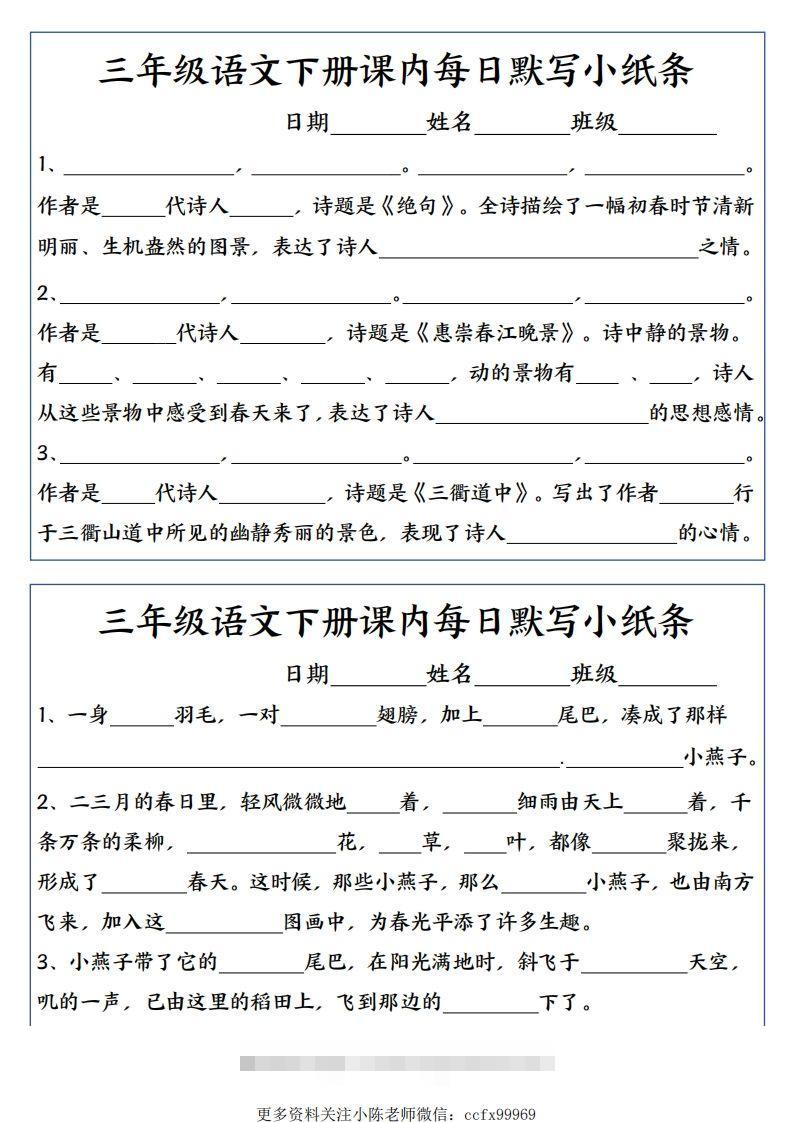 三年级语文下册课内每日默写小纸条
日期________姓名________班级________
1、________________,______________。______________,________________。
作者是______代诗人______,诗题是《绝句》。全诗描绘了一幅初春时节清新
明丽、生机盎然的图景,表达了诗人______________________________之情。
2、_______________,_______________。________________,_______________。
作者是_______代诗人________,诗题是《惠崇春江晚景》。诗中静的景物。
有_____、______、______、______、______,动的景物有____ 、____,诗人
从这些景物中感受到春天来了,表达了诗人____________________的思想感情。
3、_______________,________________。_______________,_______________。
作者是_____代诗人__________,诗题是《三衢道中》。写出了作者_______行
于三衢山道中所见的幽静秀丽的景色,表现了诗人________________的心情。
三年级语文下册课内每日默写小纸条
日期________姓名________班级________
1、一身______羽毛,一对_________翅膀,加上_______尾巴,凑成了那样
_________________________________________________.___________小燕子。
2、二三月的春日里,轻风微微地_____着,_______细雨由天上______着,千
条万条的柔柳,______________花,____草,____叶,都像_______聚拢来,
形成了________春天。这时候,那些小燕子,那么________小燕子,也由南方
飞来,加入这___________图画中,为春光平添了许多生趣。
3、小燕子带了它的________尾巴,在阳光满地时,斜飞于__________天空,
叽的一声,已由这里的稻田上,飞到那边的_________下了。
更多资料关注小陈老师微信:ccfx99969